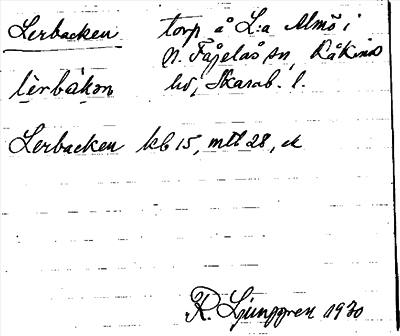 Lerbacken torp å L:a Almö i
N. Fågelås sn, Kåkinds
lèrbàkən hd, Skarab. l.
Lerbacken kb 15, mtl 28, ek
R. Ljunggren 1930